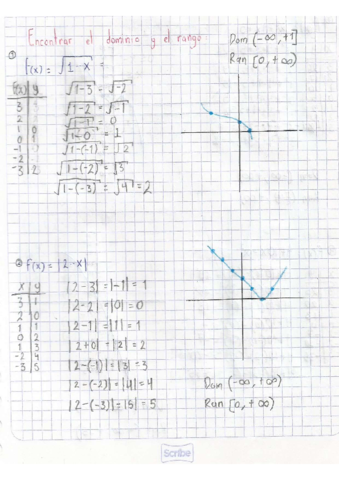 Encontrar el dominio y el rango
Dom (-∞, +1]
Ran [0, +∞)
①
F(x) = √1-x =
F(x) | y
3
2
1 | 0
0 | 1
-1
-2
-3 | 2
√1-3 = √-2
√1-2 = √-1
√1-1 = 0
√1-0 = 1
√1-(-1) = √2
√1-(-2) = √3
√1-(-3) = √4 = 2
② F(x) = |2-x|
x | y
3 | 1
2 | 0
1 | 1
0 | 2
1 | 3
-2 | 4
-3 | 5
|2-3| = |-1| = 1
|2-2| = |0| = 0
|2-1| = |1| = 1
|2+0| = |2| = 2
|2-(-1)| = |3| = 3
|2-(-2)| = |4| = 4
|2-(-3)| = |5| = 5
Dom (-∞, +∞)
Ran [0, +∞)
Scribe